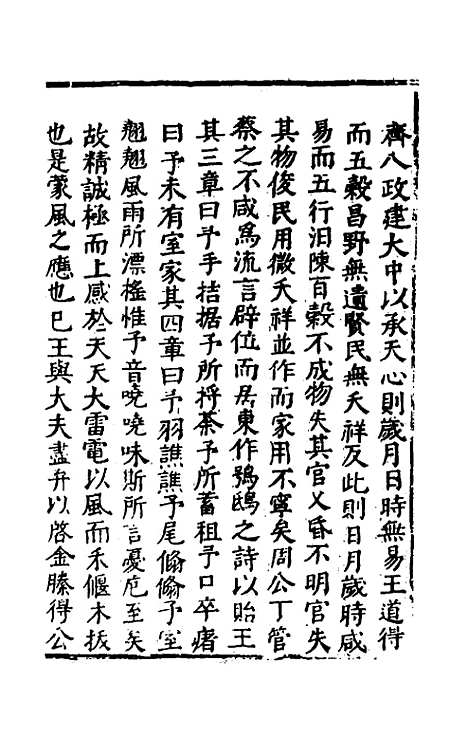 齊八政建大中以承天心則歲月日時無易王道得
而五穀昌野無遺賢民無夭祥反此則日月歲時咸
易而五行汩陳百穀不成物失其官乂昏不明官失
其物俊民用微夭祥並作而家用不寧矣周公丁管
蔡之不咸為流言辟位而居東作鴞鴟之詩以貽王
其三章曰予手拮据予所捋荼予所蓄租予口卒瘏
曰予未有室家其四章曰予羽譙譙予尾翛翛予室
翹翹風雨所漂搖惟予音嘵嘵味斯所言憂危至矣
故精誠極而上感於天天大雷電以風而禾偃木拔
也是蒙風之應也已王與大夫盡弁以啓金縢得公